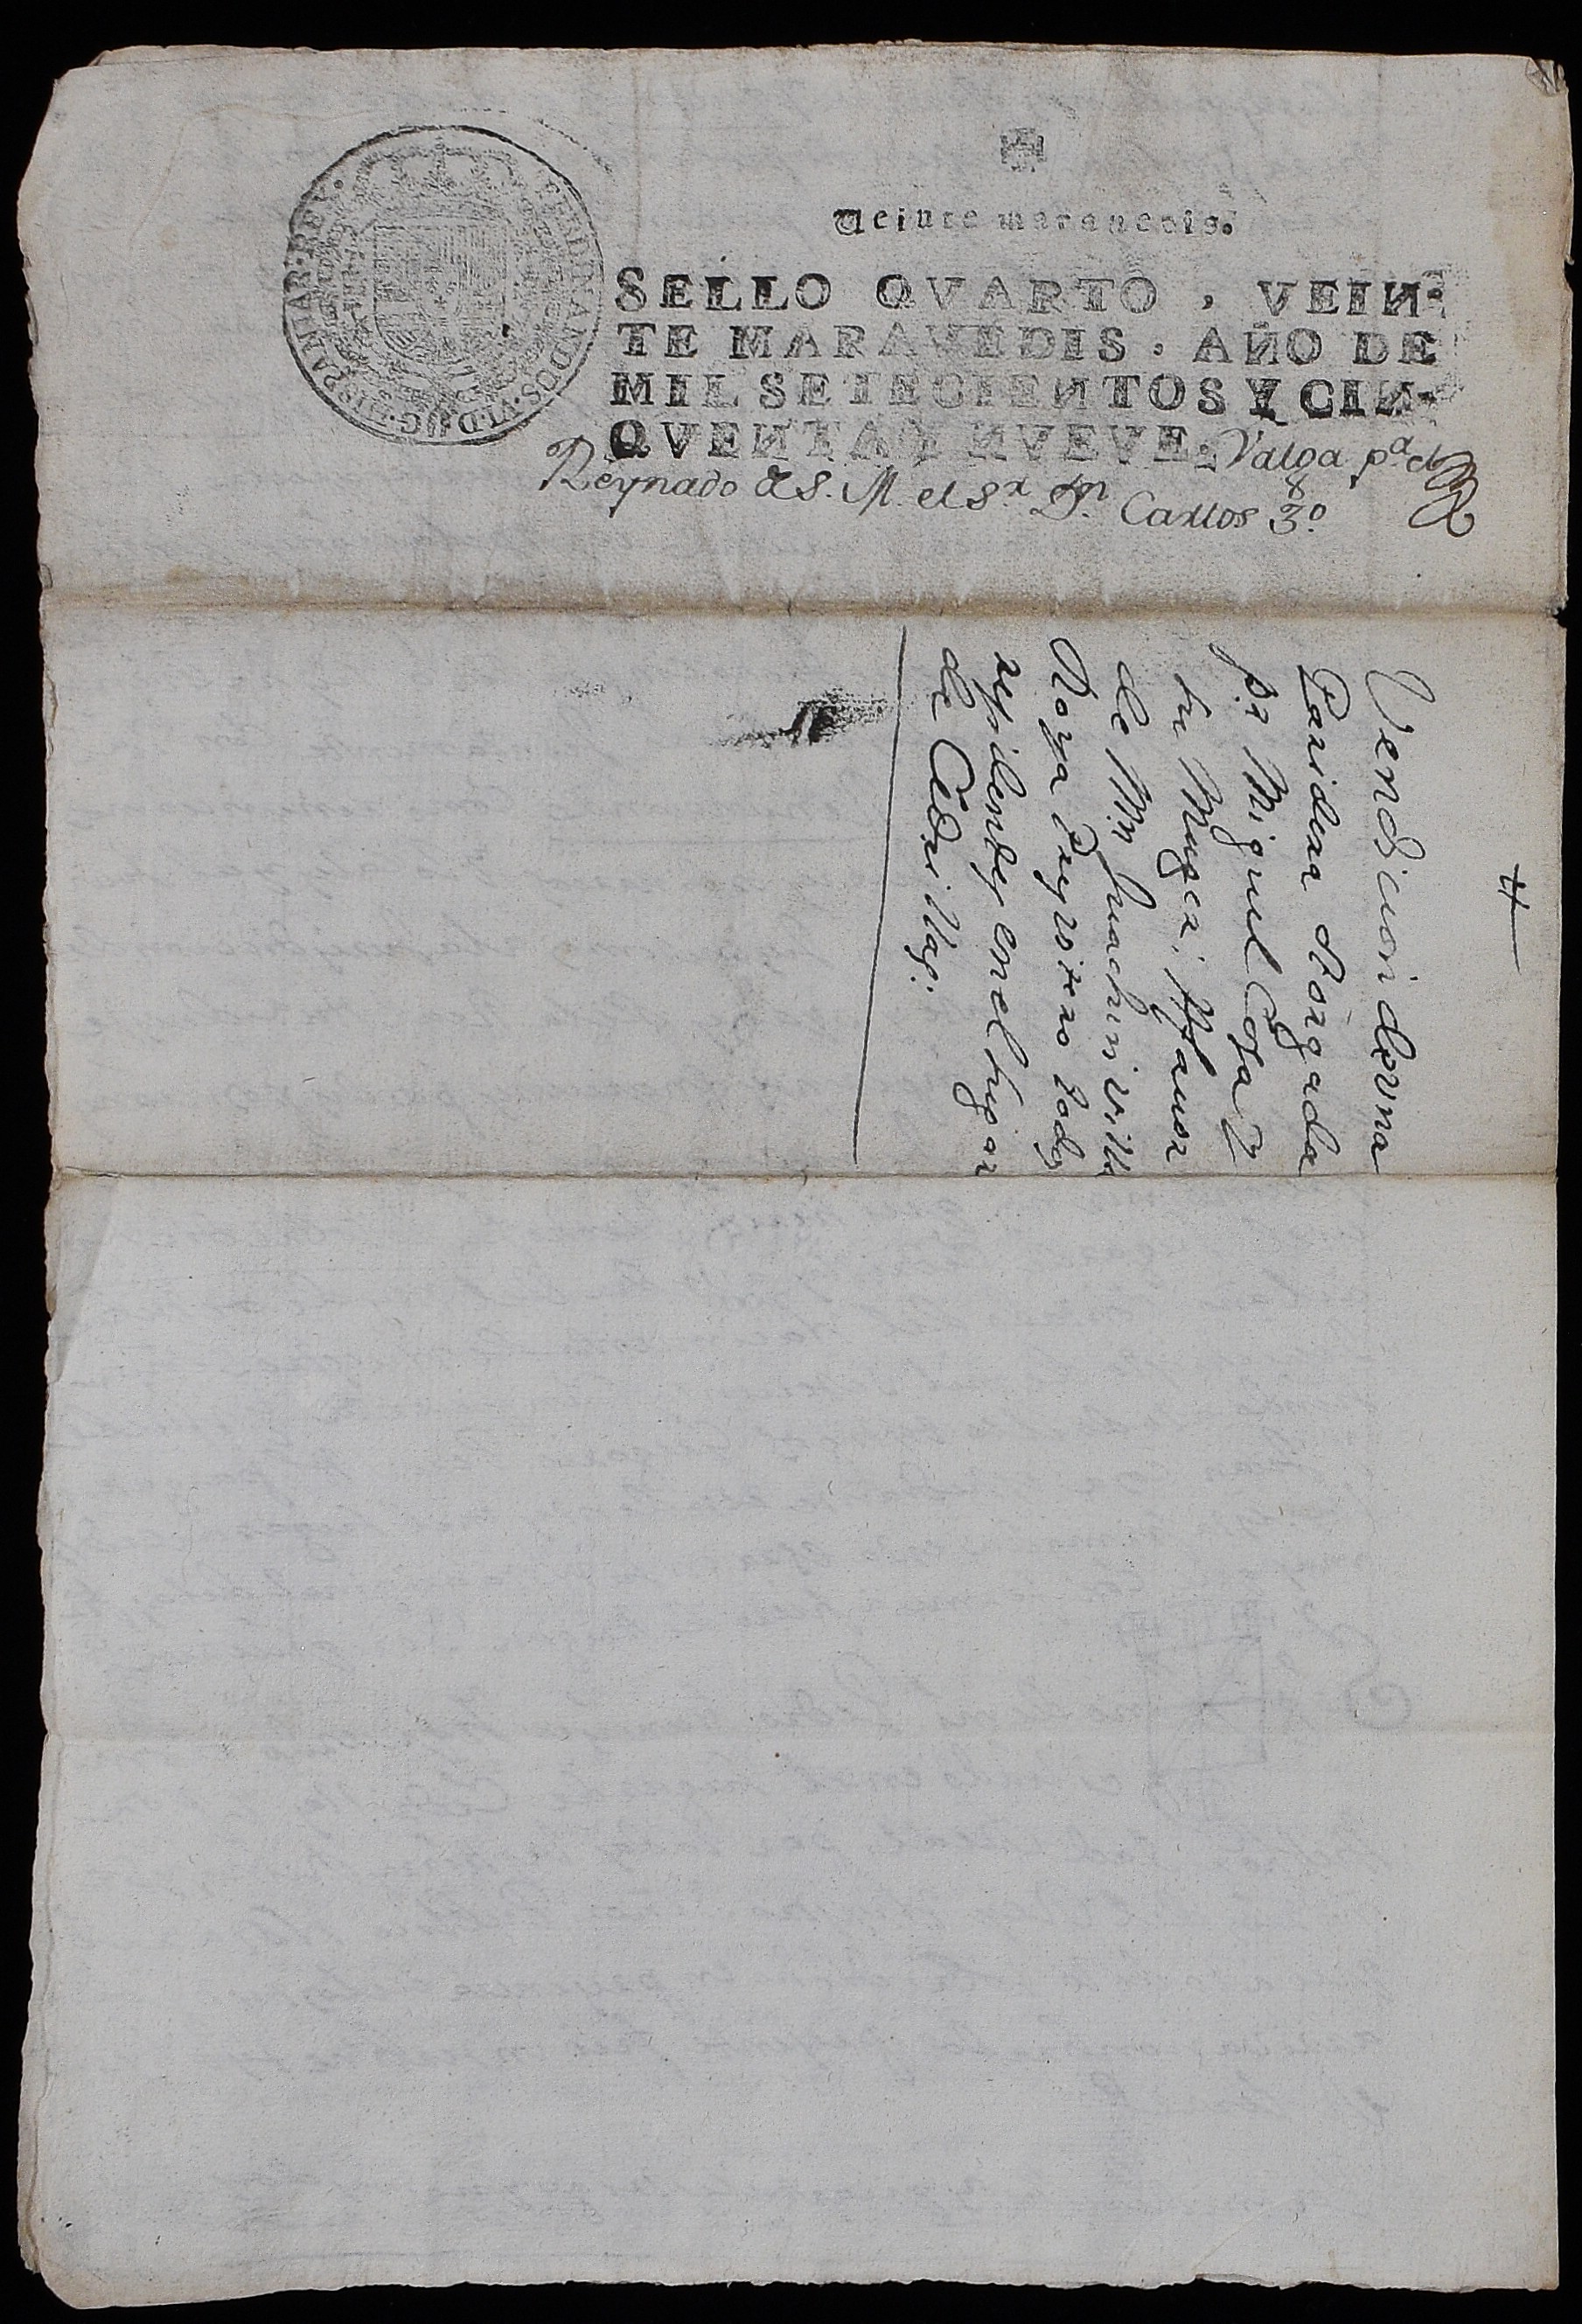 FERDINANDUS·VI·D·G·HISPANIAR·REX·
Veinte maravedis.
SELLO QVARTO, VEIN-
TE MARAVEDIS, AÑO DE
MIL SETECIENTOS Y CIN-
QVENTA Y NVEVE. Valga pa. el
Reynado de S. M. el Sr. Dn. Carlos 3o.
Vendicion de vna
Paridera otorgada
pr. Miguel Cosa Y
su Muger; Afauor
de Mn. Juachin Villa
Roya Presvitero todos
residentes en el lugar
de Cedrillas.